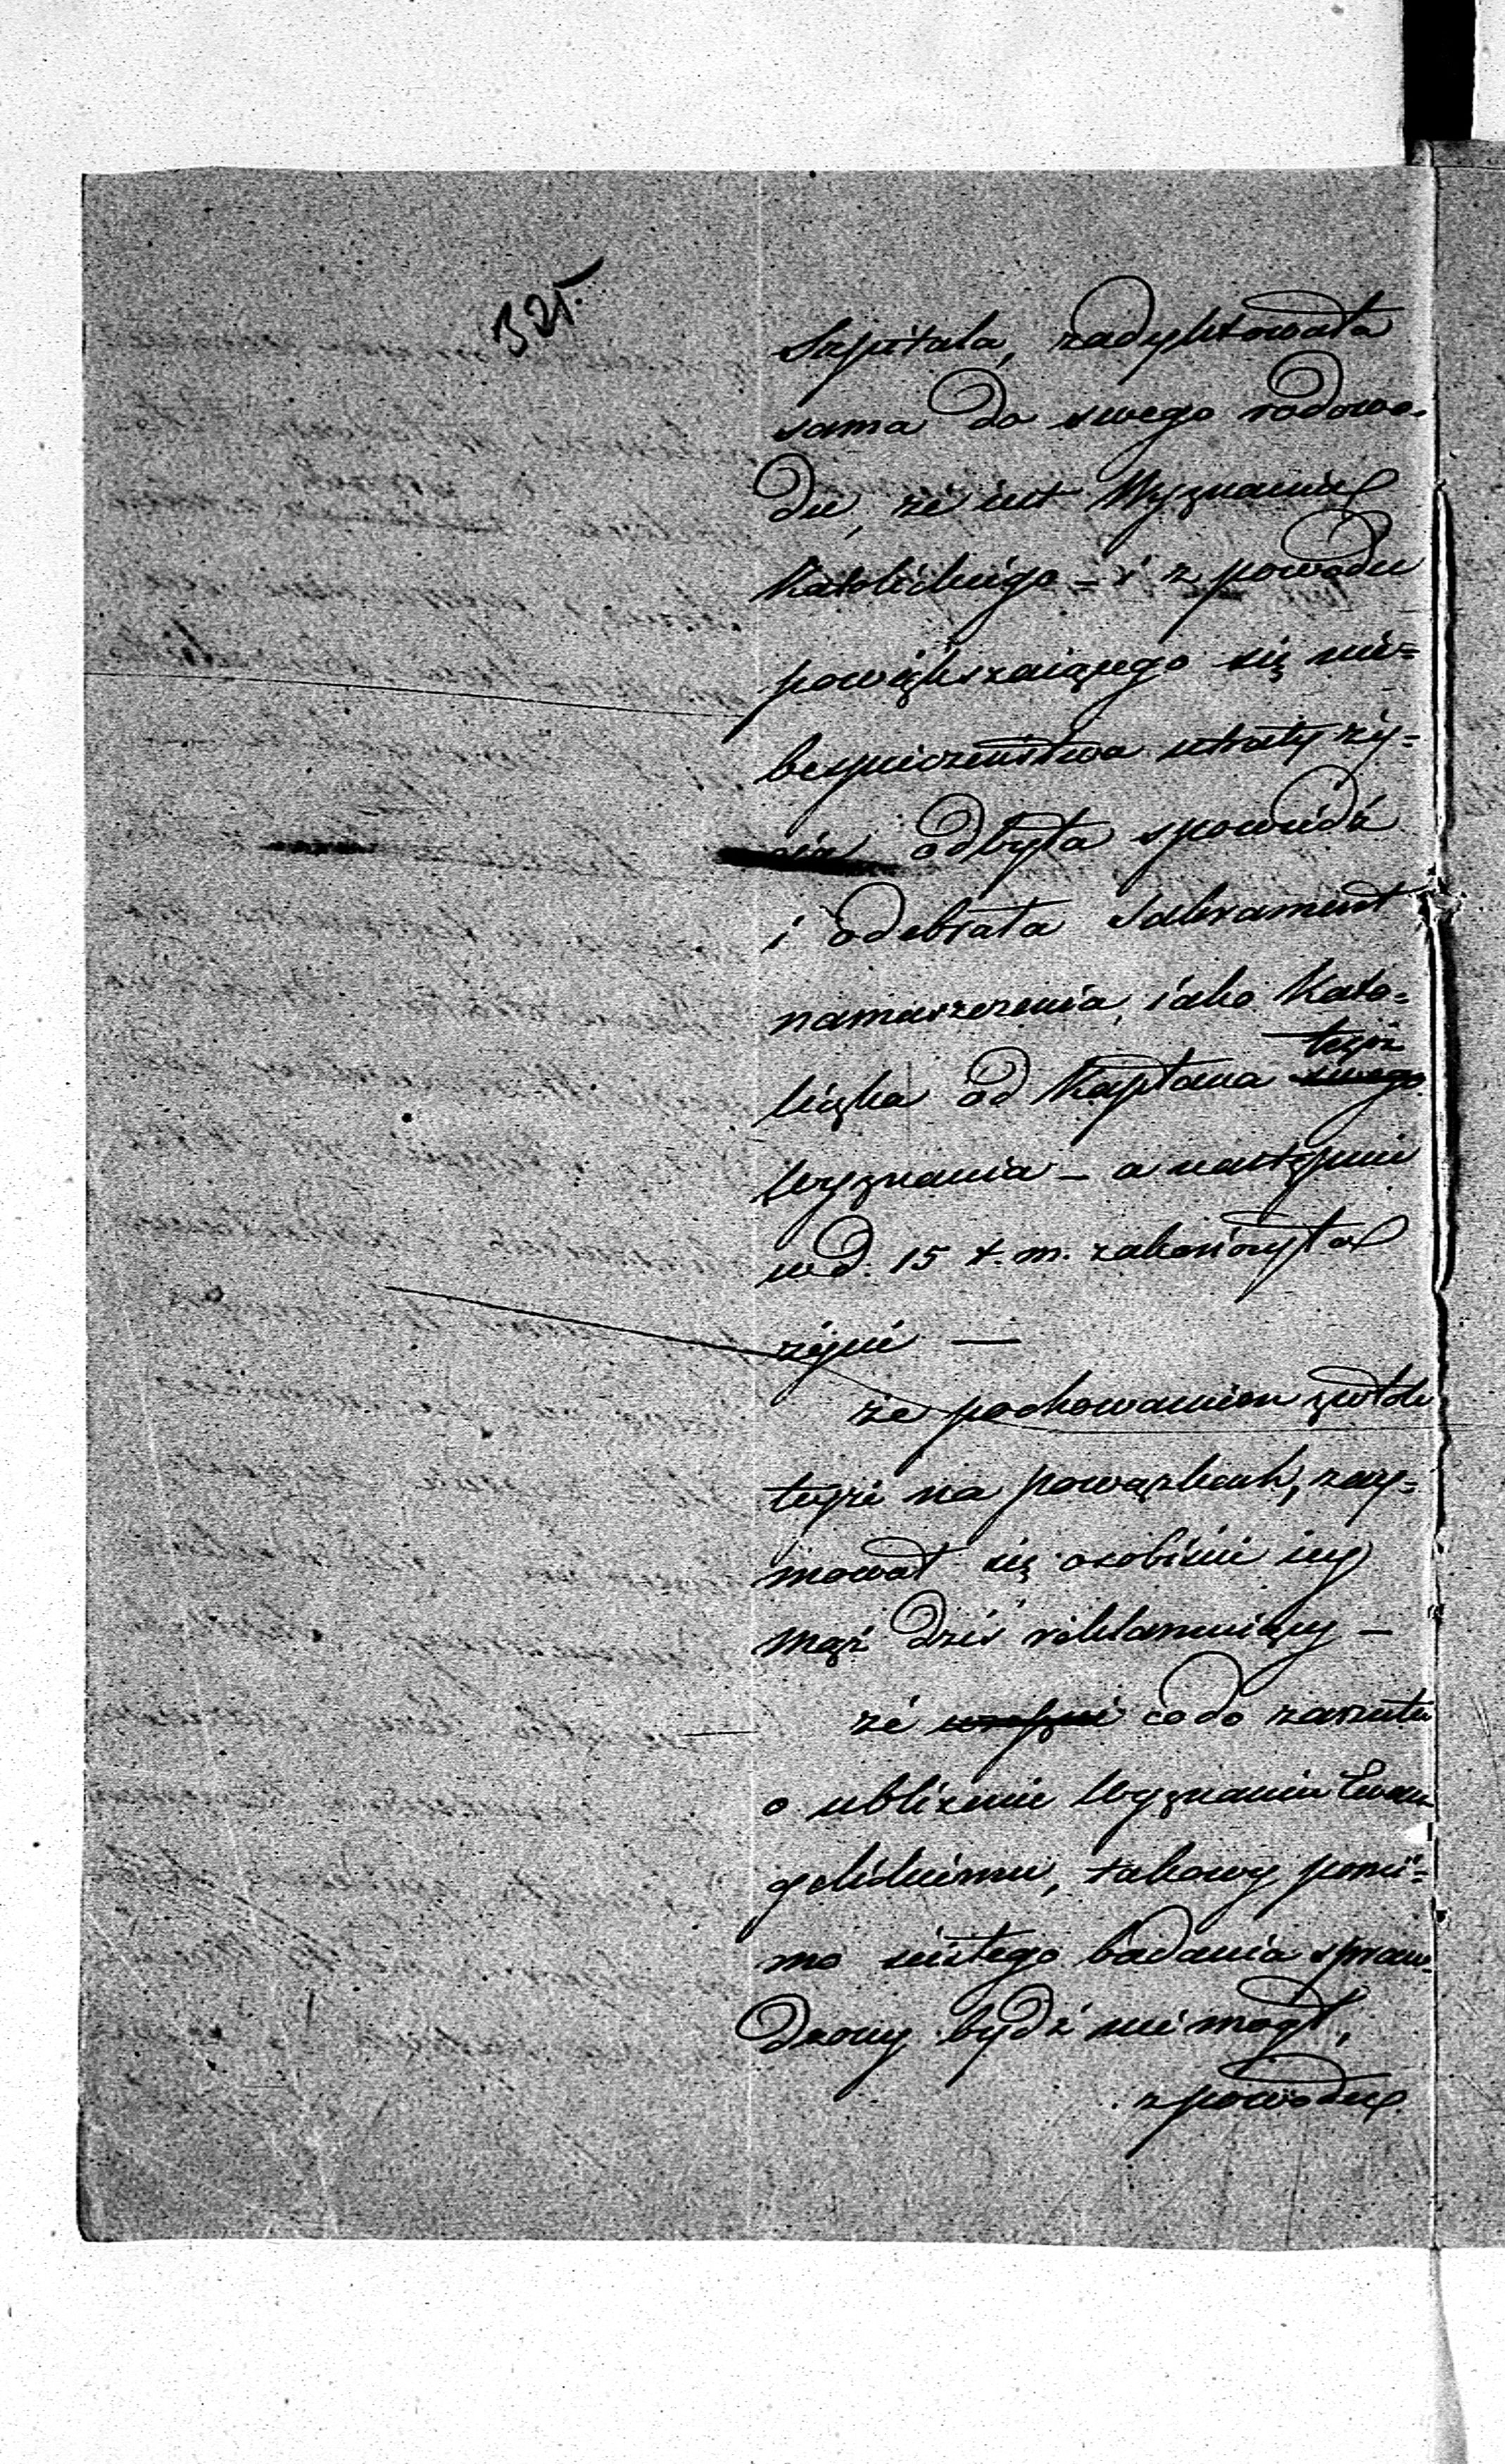 321.
Szpitala, zadyktowała
sama do swego rodowo-
du, że iest Wyznania
Katolickiego – i z powodu
powiększaiącego się nie=
bespieczeństwa utraty ży=
cia odbyła spowiedź
i odebrała Sakrament
namaszczenia, iako Kato=
liczka od Kapłana swego tegoż
wyznania – a następnie
w d. 15 t. m. zakończyła
życie —
że pochowaniem zwłok
teyże na Powązkach, zay=
mował się osobiście iey
mąż dziś reklamuiący –
że co do zarzutu
o ubliżenie Wyznaniu Ewan
gelickiemu, takowy pomi=
mo ścisłego badania spraw-
dzony bydź nie mógł,
z powodu